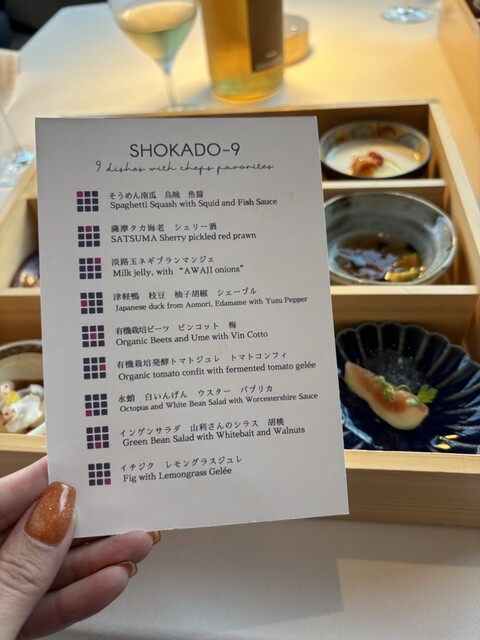 SHOKADO-9
9 dishes with chefs favorites
そうめん南瓜　烏賊　魚醤
Spaghetti Squash with Squid and Fish Sauce
薩摩タカ海老　シェリー酒
SATSUMA Sherry pickled red prawn
淡路玉ネギブランマンジェ
Milk jelly, with “AWAJI onions”
津軽鴨　枝豆　柚子胡椒　シェーブル
Japanese duck from Aomori, Edamame with Yuzu Pepper
有機栽培ビーツ　ビンコット　梅
Organic Beets and Ume with Vin Cotto
有機栽培発酵トマトジュレ　トマトコンフィ
Organic tomato confit with fermented tomato gelée
水蛸　白いんげん　ウスター　パプリカ
Octopus and White Bean Salad with Worcestershire Sauce
インゲンサラダ　山利さんのシラス　胡桃
Green Bean Salad with Whitebait and Walnuts
イチジク　レモングラスジュレ
Fig with Lemongrass Gelée